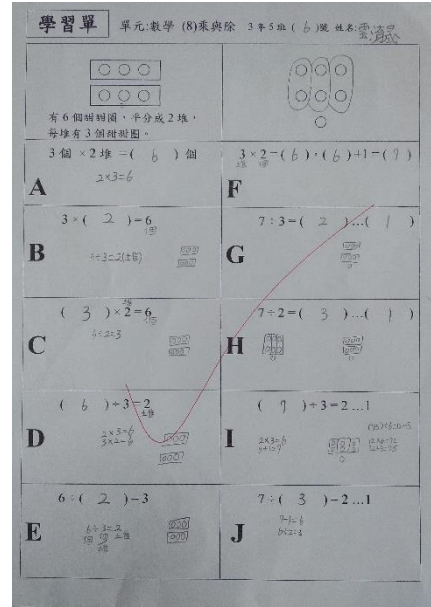 學習單 單元:數學 (8)乘與除 3年5班 ( 6 )號 姓名:
有6個甜甜圈,平分成2堆,
每堆有3個甜甜圈。
3個 ×2堆 =( 6 )個
2×3=6
A
3×2=( 6 ),( 6 )+1=( 7 )
F
3×( 2 )=6
個
6÷3=2(堆)
B
7÷3=( 2 )…( 1 )
G
( 3 )×2=6
堆 個
6÷2=3
C
7÷2=( 3 )…( 1 )
H
( 6 )÷3=2
堆
2×3=6
3×2=6
D
( 7 )÷3=2…1
2×3=6
6+1=7
I
6÷( 2 )=3
6÷3=2
E
7÷( 3 )=2…1
7-1=6
6÷2=3
J